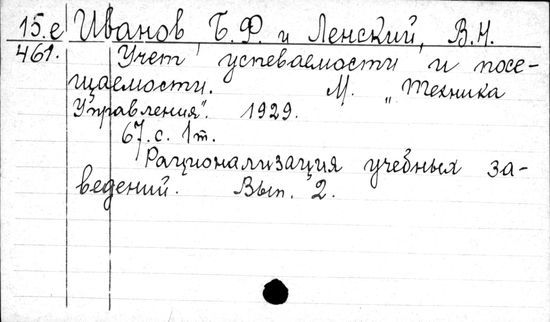 15.е Иванов Б.Ф. и Ленский, В.Н.
461. Учет успеваемости и посе-
щаемости. М. „Техника
Управления". 1929.
67.с. 1т.
Рационализация учебных за-
ведений. Вып. 2.